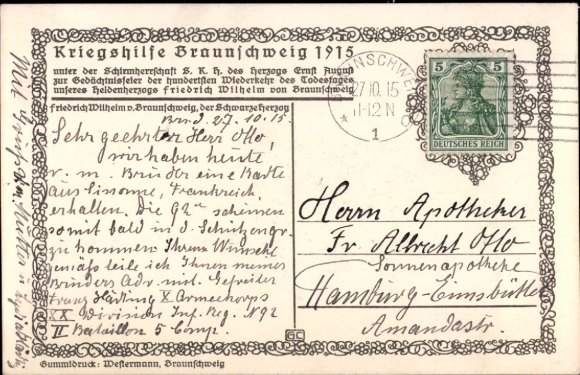 Kriegshilfe Braunschweig 1915
unter der Schirmherrschaft S. K. H. des Herzogs Ernst August
zur Gedächtnisfeier der hundertsten Wiederkehr des Todestages
unseres Heldenherzogs Friedrich Wilhelm von Braunschweig
Friedrich Wilhelm v. Braunschweig, der Schwarze Herzog
27.10.15.
Sehr geehrter Herr Otto,
wir haben heute
v. m. Bruder eine Karte
aus Sissonne, Frankreich,
erhalten. Die 92er scheinen
somit bald in d. Schützengr.
zu kommen. Ihrem Wunsche
gemäß teile ich Ihnen meines
Bruders Adr. mit. Gefreiter
Franz Hartung X Armeekorps
XX Division Inf. Reg. N 92
II Bataillon 5 Comp.
Mit
Mutter u.
BRAUNSCHWEIG
27.10.15
11-12 N
* 1
5 5
DEUTSCHES REICH
Herrn Apotheker
Fr. Albrecht Otto
Sonnenapotheke
Hamburg-Eimsbüttel
Amandastr.
Gummidruck: Westermann, Braunschweig